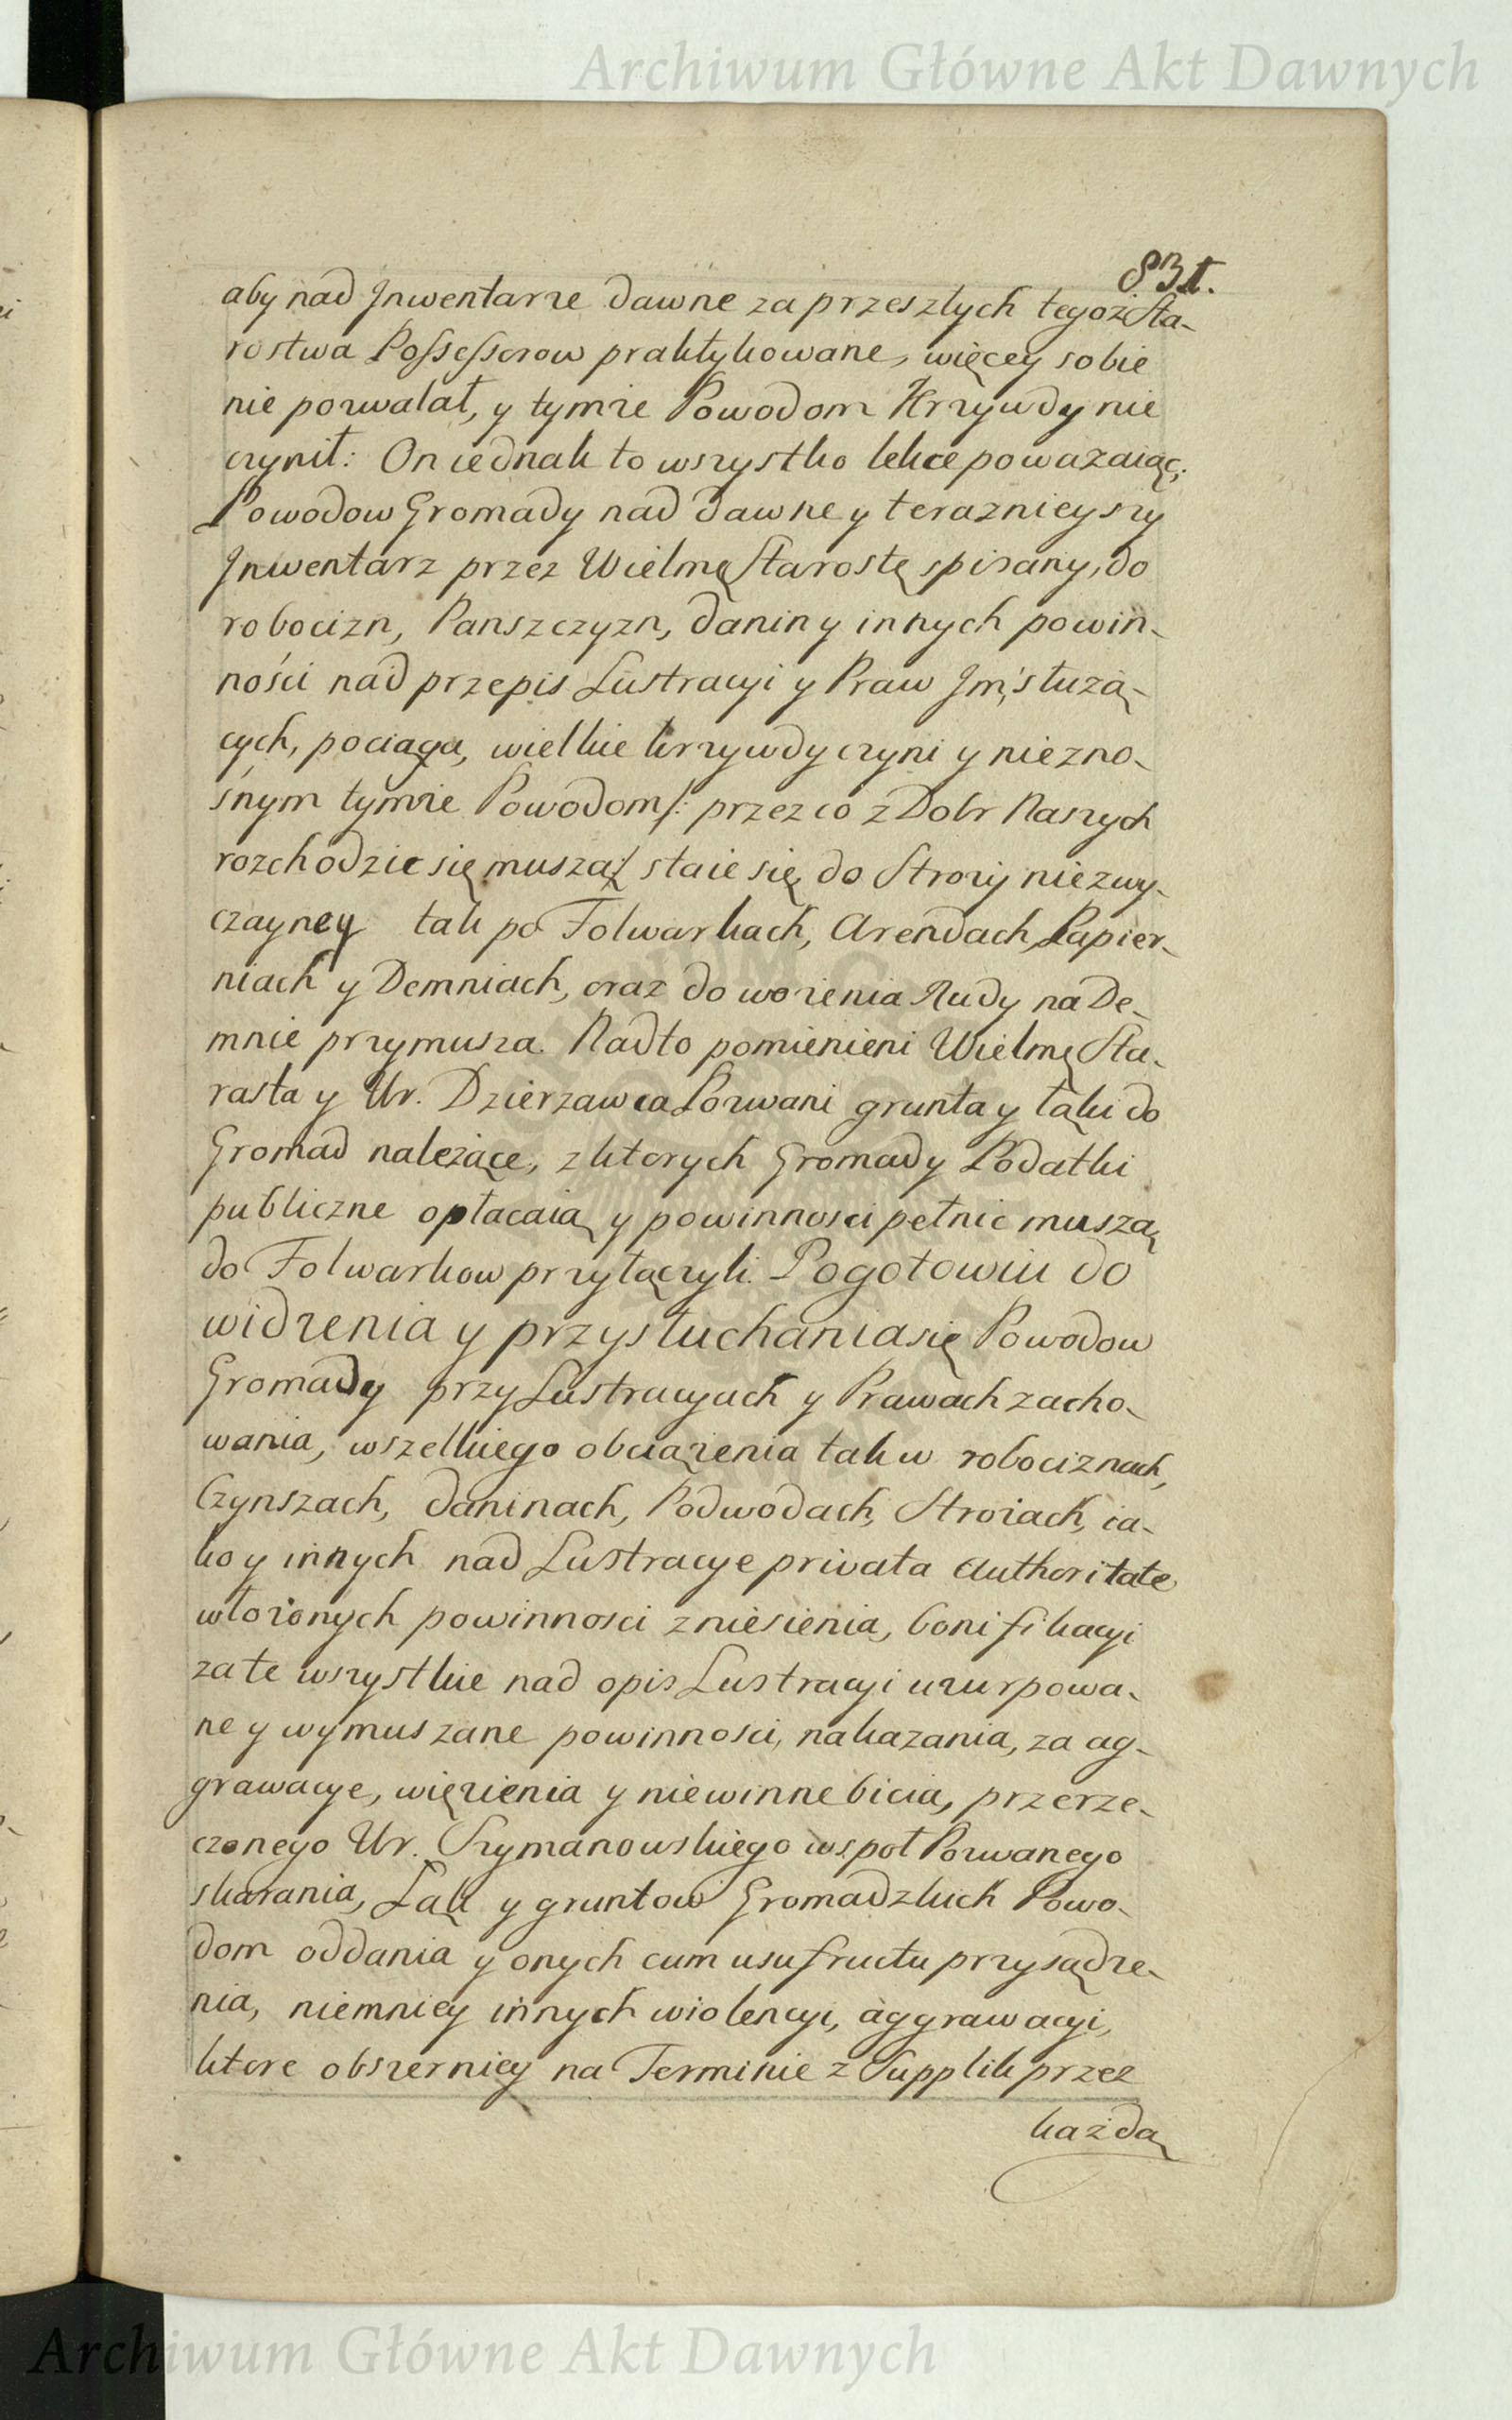 Archiwum Główne Akt Dawnych
831.
aby nad Jnwentarze dawne za przeszłych tegoż Sta-
rostwa Possessorow praktykowane, więcey sobie
nie pozwalał, y tymże Powodom Krzywdy nie
czynił: On iednak to wszystko lekce poważaiąc;
Powodow Gromady nad dawne y teraznieyszy
Jnwentarz przez Wielmę Starostę spisany, do
robocizn, Panszczyzn, danin y innych powin-
ności nad przepis Lustracyi y Praw Jm, służą-
cych, pociąga, wielkie krzywdy czyni y niezno-
śnym tymże Powodom /: przez co z Dobr Naszych
rozchodzic się muszą :/ staie się, do Stroży niezwy-
czayney tak po Folwarkach, Arendach, Papier-
niach y Demniach, oraz do wożenia Rudy na De-
mnie przymusza. Nadto pomienieni Wielmę Sta-
rasta y Ur. Dzierzawca Pozwani grunta y łąki do
Gromad należące, z ktorych Gromady Podatki
publiczne opłacaią y powinnosci pełnic muszą
do Folwarkow przyłączyli. Pogotowiu do
widzenia y przysłuchania się Powodow
Gromady przy Lustracyach y Prawach zacho-
wania, wszelkiego obciążenia tak w robociznach,
Czynszach, daninach, Podwodach, Strożach, ia-
ko y innych nad Lustracye privata authoritate
włożonych powinnosci zniesienia, bonifikacyi
za te wszystkie nad opis Lustracyi uzurpowa-
ne y wymuszane powinnosci, nakazania, za ag-
grawacye, więzienia y niewinne bicia, przerze-
czonego Ur. Szymanowskiego wspoł Pozwanego
skarania, Łąk y gruntow Gromadzkich Powo-
dom oddania y onych cum usufructu przysądze-
nia, niemniey innych wiolencyi, aggrawacyi,
ktore obszerniey na Terminie z Supplik przez
każdą
Archiwum Główne Akt Dawnych